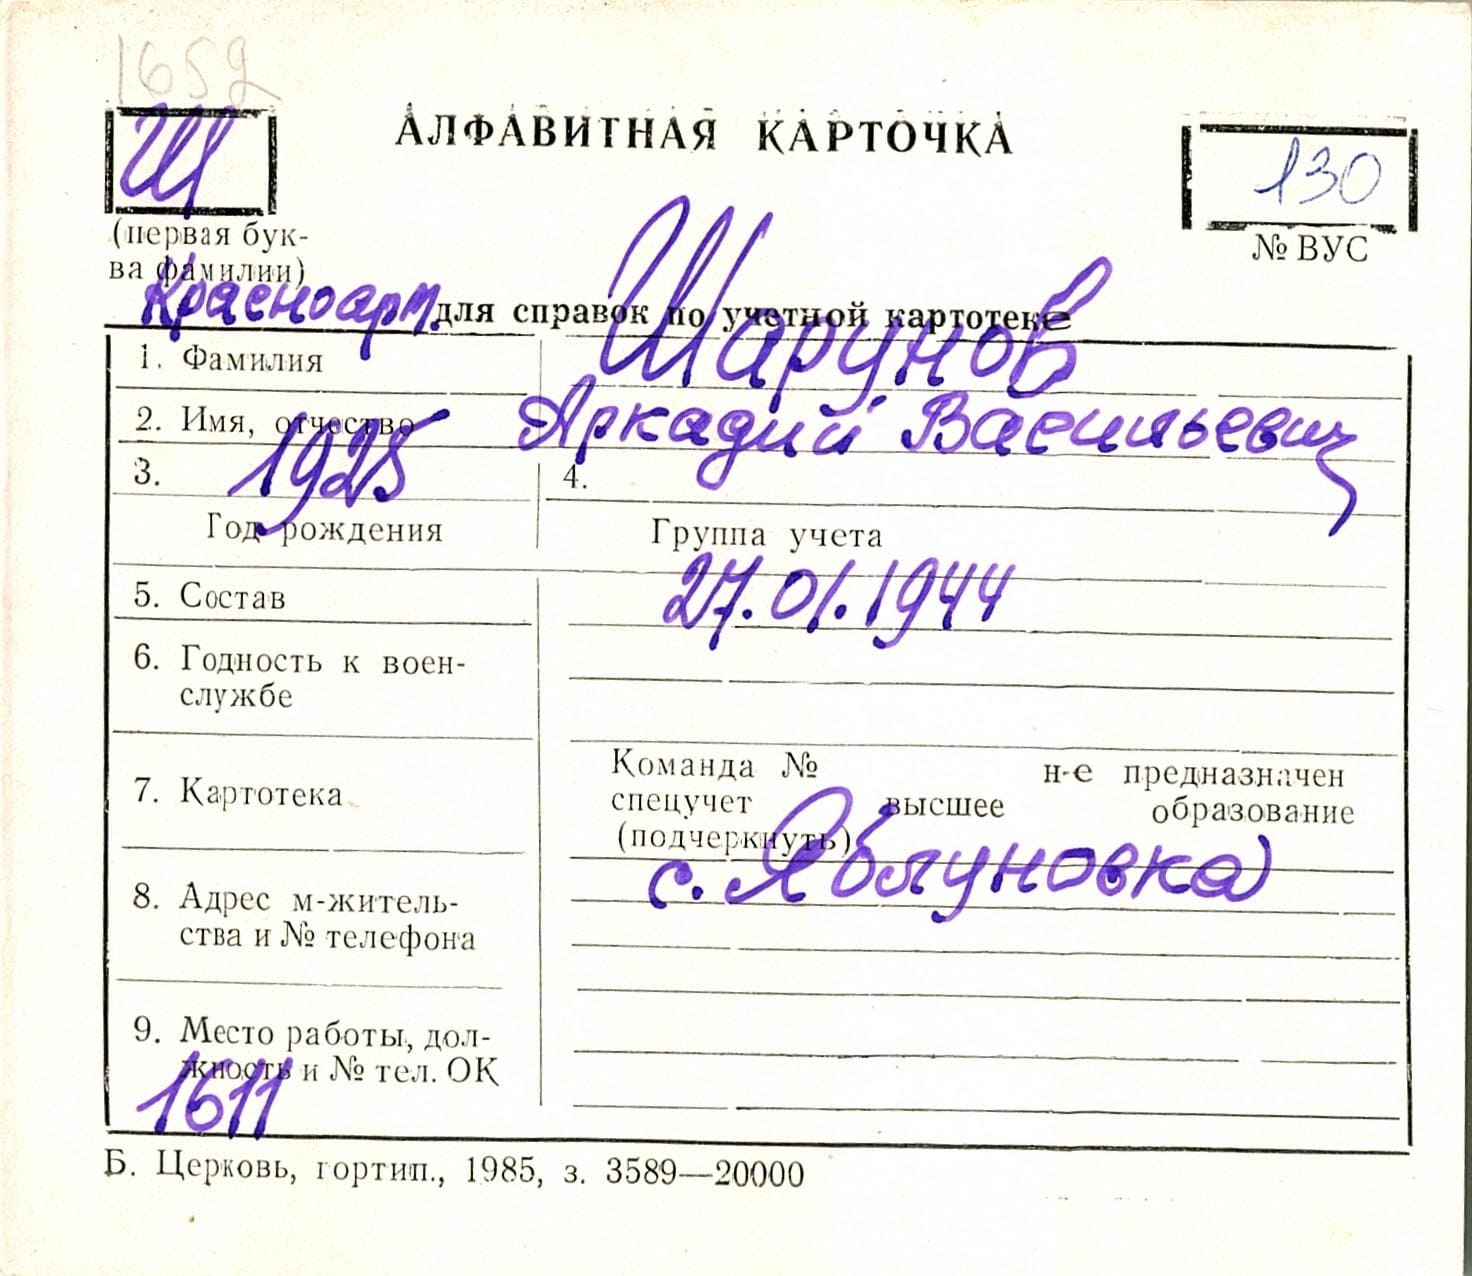 1652
Ш
АЛФАВИТНАЯ КАРТОЧКА
130
(первая бук-
ва фамилии)
№ ВУС
Красноарм.
для справок по учетной картотеке
1. Фамилия Шарунов
2. Имя, отчество Аркадий Васильевич
3. 1925 4.
Год рождения Группа учета
27.01.1944
5. Состав
6. Годность к воен-
службе
Команда № н-е предназначен
7. Картотека спецучет высшее образование
(подчеркнуть)
с. Яблуновка
8. Адрес м-житель-
ства и № телефона
9. Место работы, дол-
жность и № тел. ОК
1611
Б. Церковь, гортип., 1985, з. 3589—20000